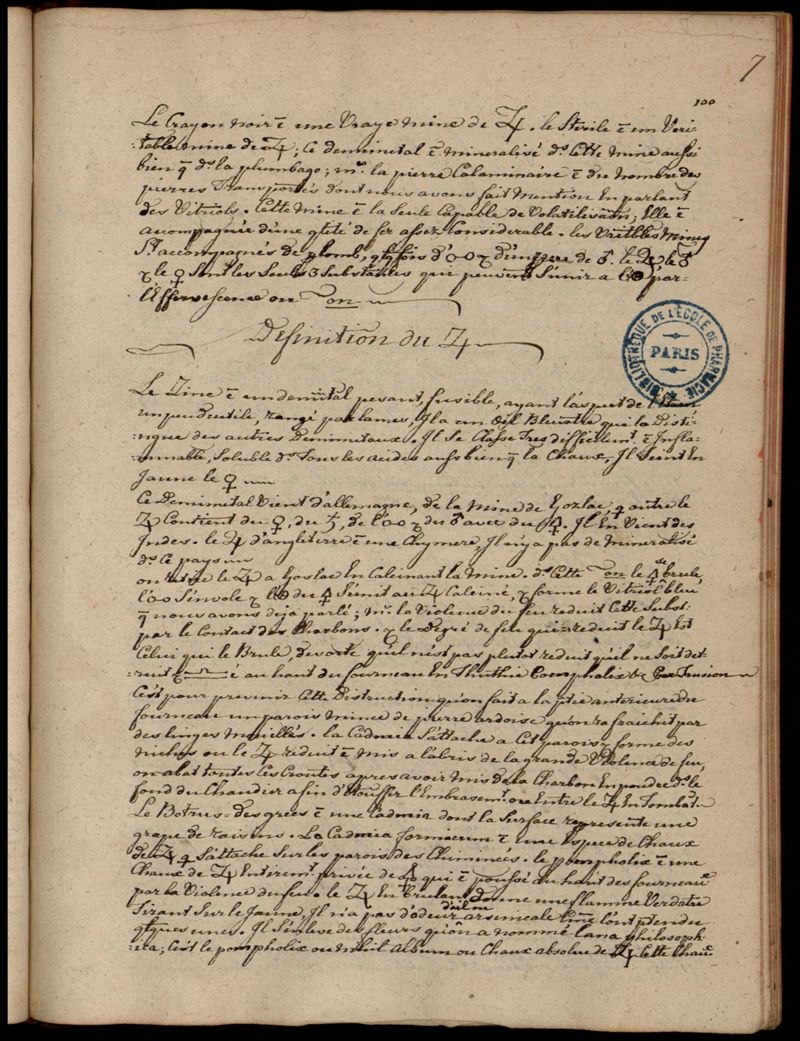 7
100
Le Crayon noir ē une Vraye mine de Z. le Stérile ē un Veri-
:table mine de Z; Ce demimetal ē mineralisé ds Cette mine aussi
bien q ds la plumbago; la pierre Calaminaire ē du nombre des
pierres Transportés dont nous avons fait mention En parlant
des Vitriols. Cette mine ē la Seule Capable de Volatilisaōn; Elle ē
acompagnée d'une qtité de fer assez Considerable. les Mines
St accompagnés de plomb, le
& le ♀ Sont les Seuls 3 Substances qui peuvent S'unir a par
l'Effervescence ou on
Definition du Z
Le Zinc ē un demimetal pesant, fusible, ayant l'aspect de
un peu ductile, rangé par lames, Il a un Oeil Bleuatre qui le Disti-
:ngue des autres Demimetaux. Il Se Casse Tres difficilemt. ē Infla-
:mmable, Soluble ds Tous les acides aussi bien q la Chaux, Il Teint En
Jaune le ♀
Ce Demimetal Vient d'allemagne, de la Mine de Gozlac, outre le
Z Contient du ♀, du ♄, de l'oo & du avec du 🜍. Il En Vient des
Indes. le Z d'angleterre ē une Chymere, Il n'y a pas de Mineralisé
ds Ce pays
on retire le Z a Goslac En Calcinant la Mine. ds Cette on le 🜍 se brule,
l'oo S'envole & du 🜍 S'unit au Z Calciné, & forme le Vitriol bleu
q nous avons deja parlé; la Violence du feu reduit Cette Subst-
par le Contact des Charbons. & le Degré de feu qui reduit le Z Est
Celui qui le Brule, desorte qu'il n'est pas plutot reduit qu'il ne Soit det-
:ruit & ē au haut du fourneau En Thuthie Pompholix &
C'est pour prevenir Cette Distruction qu'on fait a la ptie anterieure du
fourneau un parois mince de pierre ardoise qu'on rafraichit par
des linges mouillés. la Cadmia S'attache a Cet parois & forme des
niches ou le Z reduit ē mis a l'abris de la grande Violence du feu,
on abat toutes Ces Croutes apres avoir mis de la Charbon En poudre ds le
fond du Chaudier afin d'Etouffer l'Embrasemt. ou Entre le Z En Tombāt.
Le Botrus des grecs ē une Cadmia dont la Surface represente une
grape de raisins. La Cadmia fornacum ē une Espece de Chaux
de Z q S'attache Sur les parois des Chiminées. le pompholix ē une
Chaux de Z Entieremt. privée de qui ē poussé au haut des fourneau
par la Violence du feu. le Z En brulant Donne une flamme Verdatre
Tirant Sur le Jaune, Il n'a pas d'odeur d'ail ou arsenicale Come l'ont ptendu
qlques unes. Il S'enleve des fleurs qu'on a nommé lana philosoph-
:ica; C'est le pompholix ou nihil album ou Chaux absolue de Z, Cette Chaux
BIBLIOTHÈQUE DE L'ÉCOLE DE PHARMACIE
PARIS